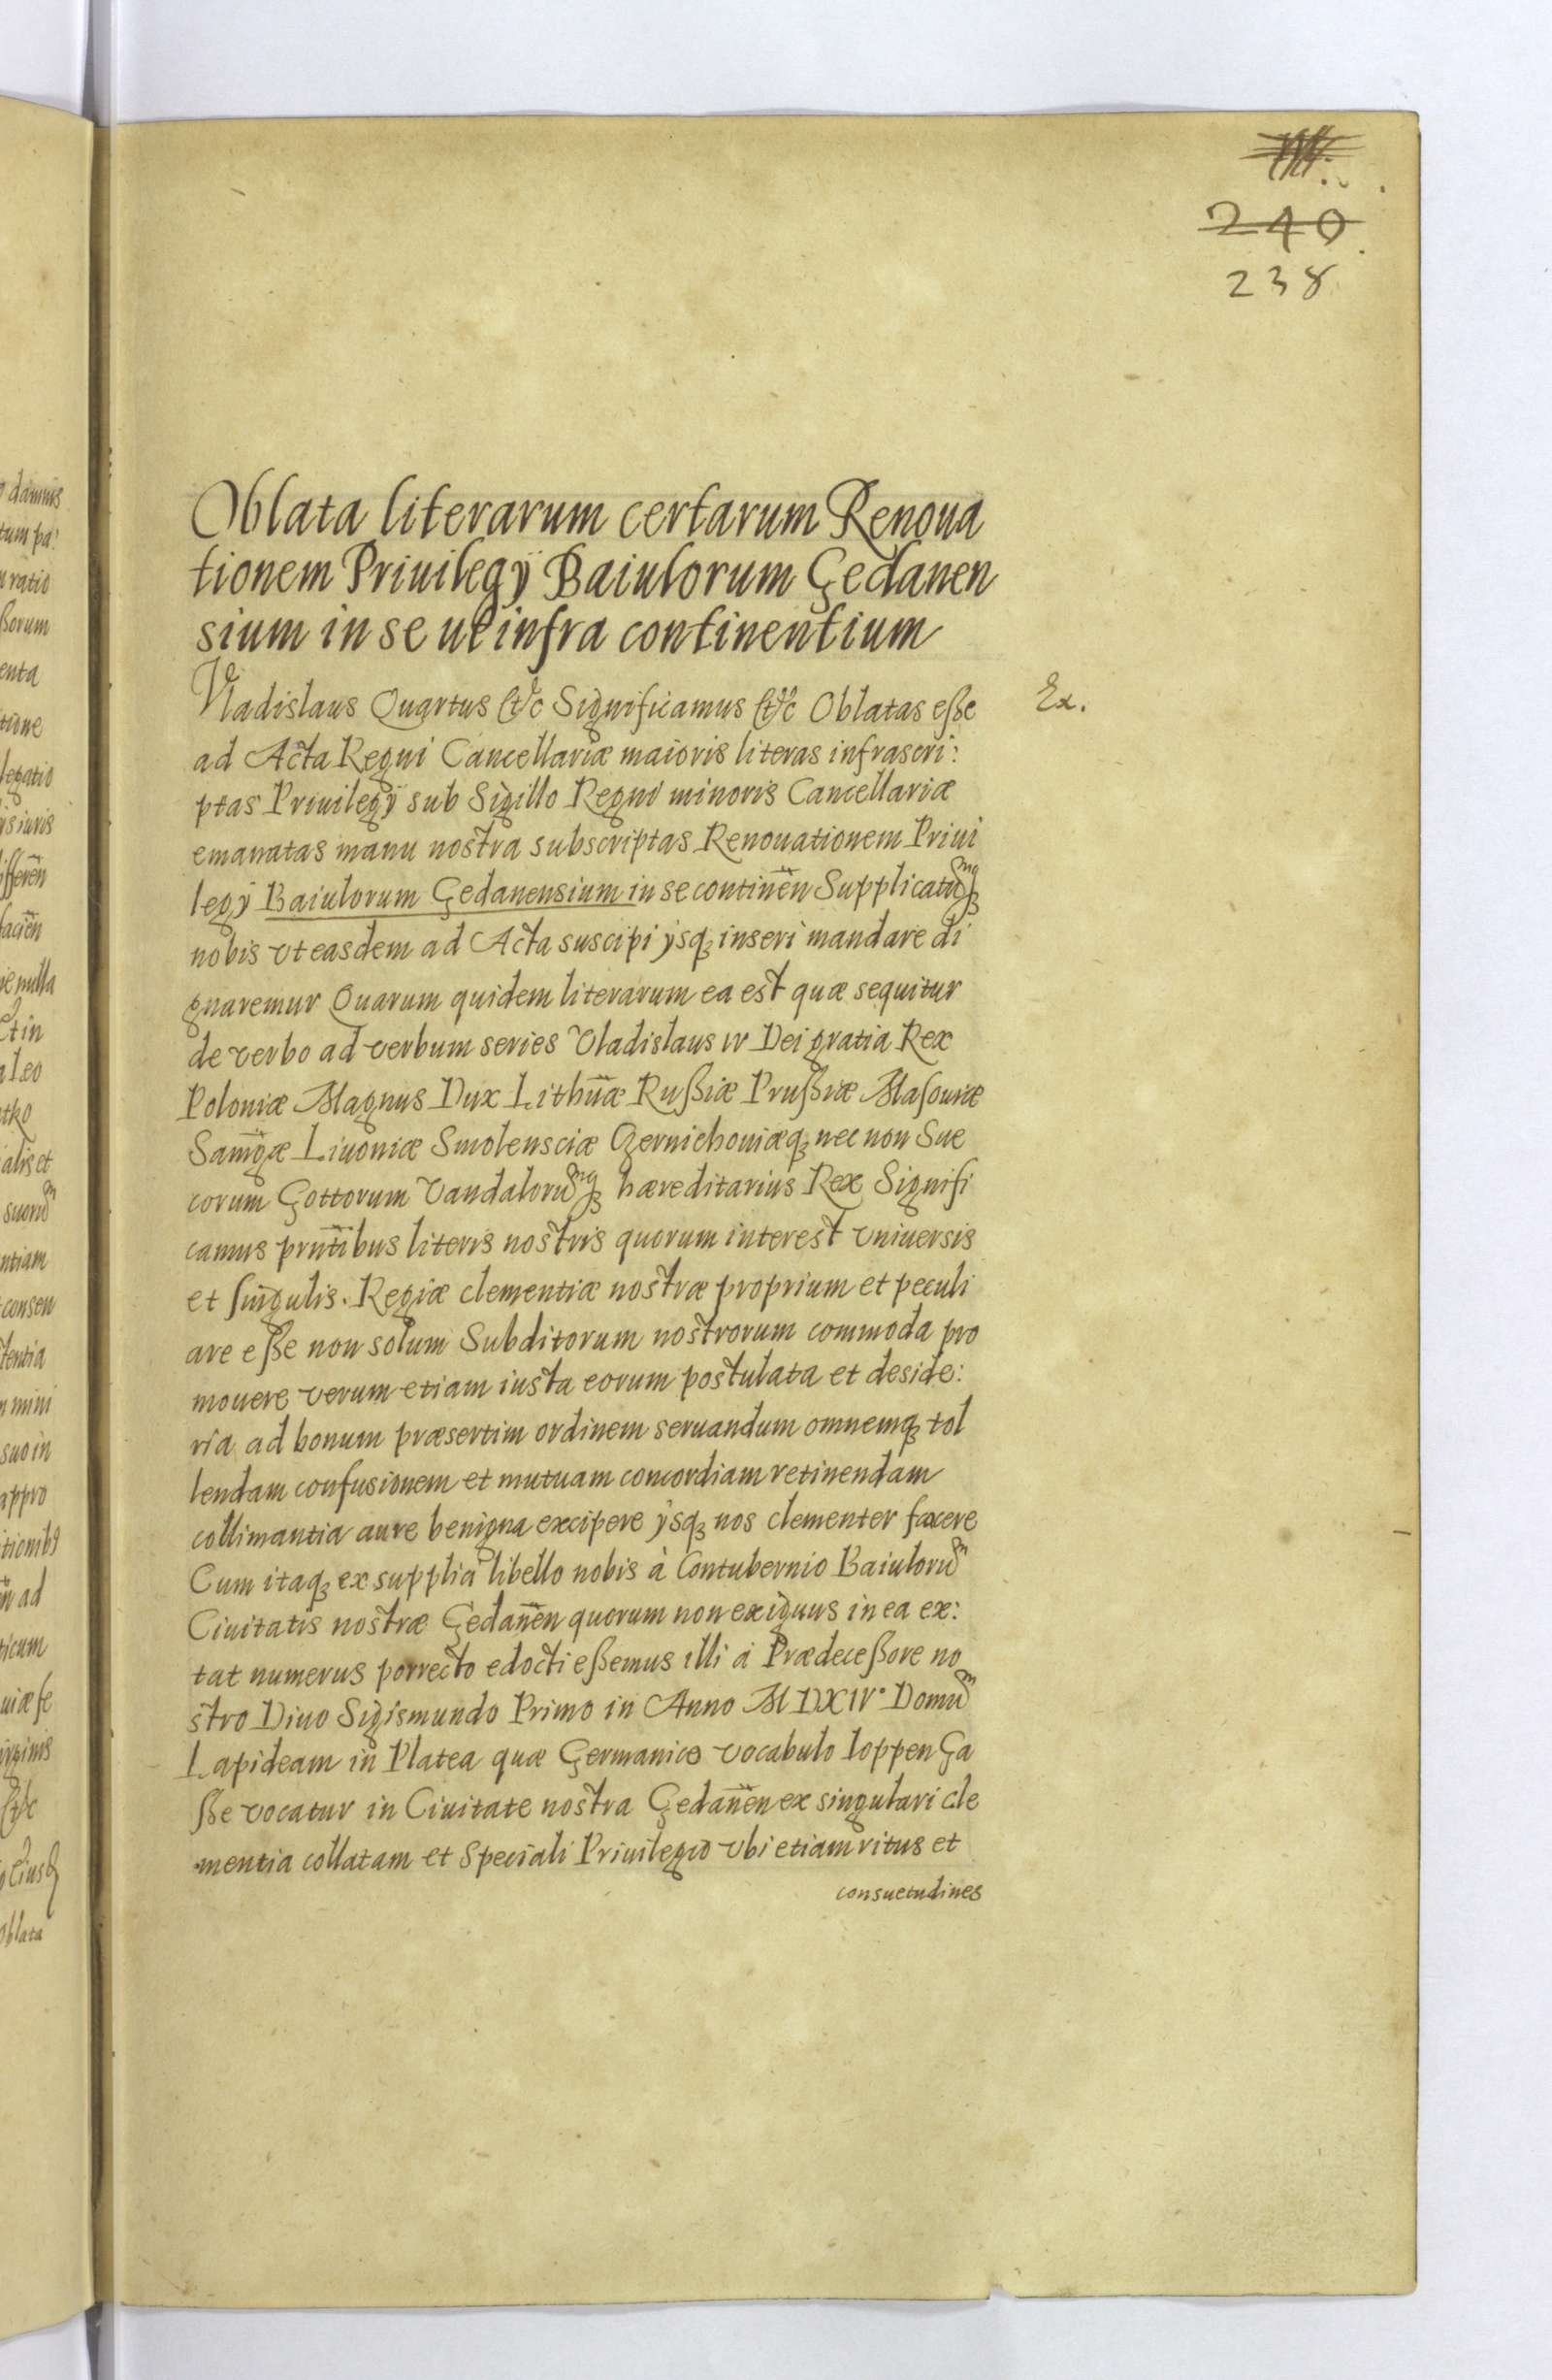 240
238
Oblata literarum certarum Renoua
tionem Priuilegÿ Baiulorum Gedanen
sium in se ut infra continentium
Vladislaus Quartus etc Significamus etc Oblatas eße
Ex.
ad Acta Regni Cancellariæ maioris literas infrascri:
ptas Priuilegÿ sub Sigillo Regni minoris Cancellariæ
emanatas manu nostra subscriptas Renouationem Priui
legÿ Baiulorum Gedanensium in se continen̄ Supplicatūq3
nobis vt easdem ad Acta suscipi ÿsq3 inseri mandare di
gnaremur Quarum quidem literarum ea est quæ sequitur
de verbo ad verbum series Vladislaus IV Dei gratia Rex
Poloniæ Magnus Dux Lithuāæ Rußiæ Prußiæ Masouiæ
Samḡæ Liuoniæ Smolensciæ Czernichouiæq3 nec non Sue
corum Gottorum Vandalorūq3 hæreditarius Rex Signifi
camus pnt̄ibus literis nostris quorum interest vniuersis
et singulis. Regiæ clementiæ nostræ proprium et peculi
are eße non solum Subditorum nostrorum commoda pro
mouere verum etiam iusta eorum postulata et deside:
ria ad bonum præsertim ordinem seruandum omnemq3 tol
lendam confusionem et mutuam concordiam retinendam
collimantia aure benigna excipere ÿsq3 nos clementer facere
Cum itaq3 ex supplici libello nobis à Contubernio Baiulorū
Ciuitatis nostræ Gedanen̄ quorum non exiguus in ea ex:
tat numerus porrecto edocti eßemus illi à Prædeceßore no
stro Diuo Sigismundo Primo in Anno MDXIV° Domū
Lapideam in Platea quæ Germanico vocabulo Ioppen Ga
ße vocatur in Ciuitate nostra Gedanen̄ ex singulari cle
mentia collatam et Speciali Priuilegio vbi etiam ritus et
consuetudines